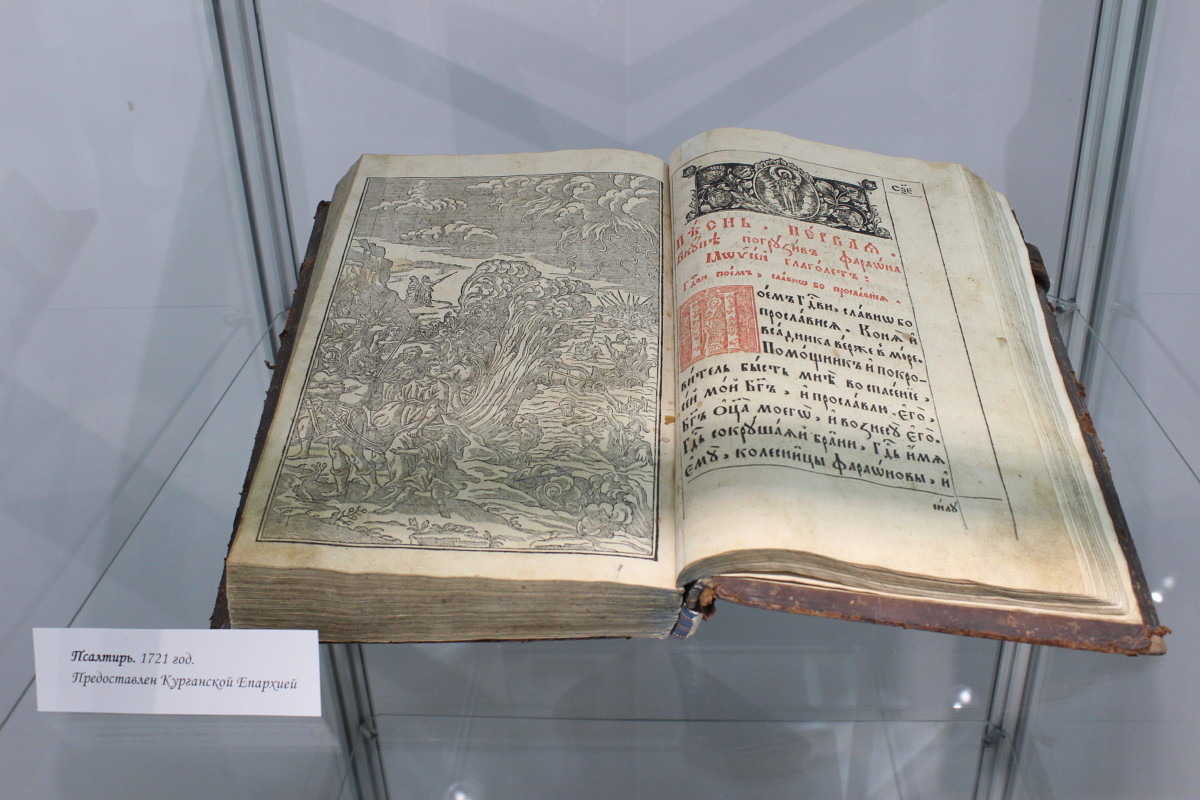 сѯ҃є
Пѣ́снь · пе́рваѧ ·
Вкꙋ́пѣ погрꙋзи́въ фараѡ́на
Мѡѷсе́й глаго́летъ :
Гдⷭ҇ви пое́мъ , сла́внѡ бо просла́висѧ .
Пое́мъ гдⷭ҇ви , сла́внѡ бо
просла́висѧ . Конѧ̀ и҆
вса́дника ве́рже в̾ мо́ре .
Помо́щникъ и҆ покро-
ви́тель бы́сть мнѣ̀ во спасе́нїе ,
се́й мо́й бг҃ъ , и҆ просла́влю є҆го̀ .
бг҃ъ ѻ҆ц҃а̀ моегѡ̀ , и҆ вознесꙋ̀ є҆го̀ .
Гдⷭ҇ь сокрꙋша́ѧй бра́ни , гдⷭ҇ь и҆́мѧ
є҆мꙋ̀ , колесни́цы фараѡ́новы , и҆
си́лꙋ
Псалтирь. 1721 год.
Предоставлен Курганской Епархией